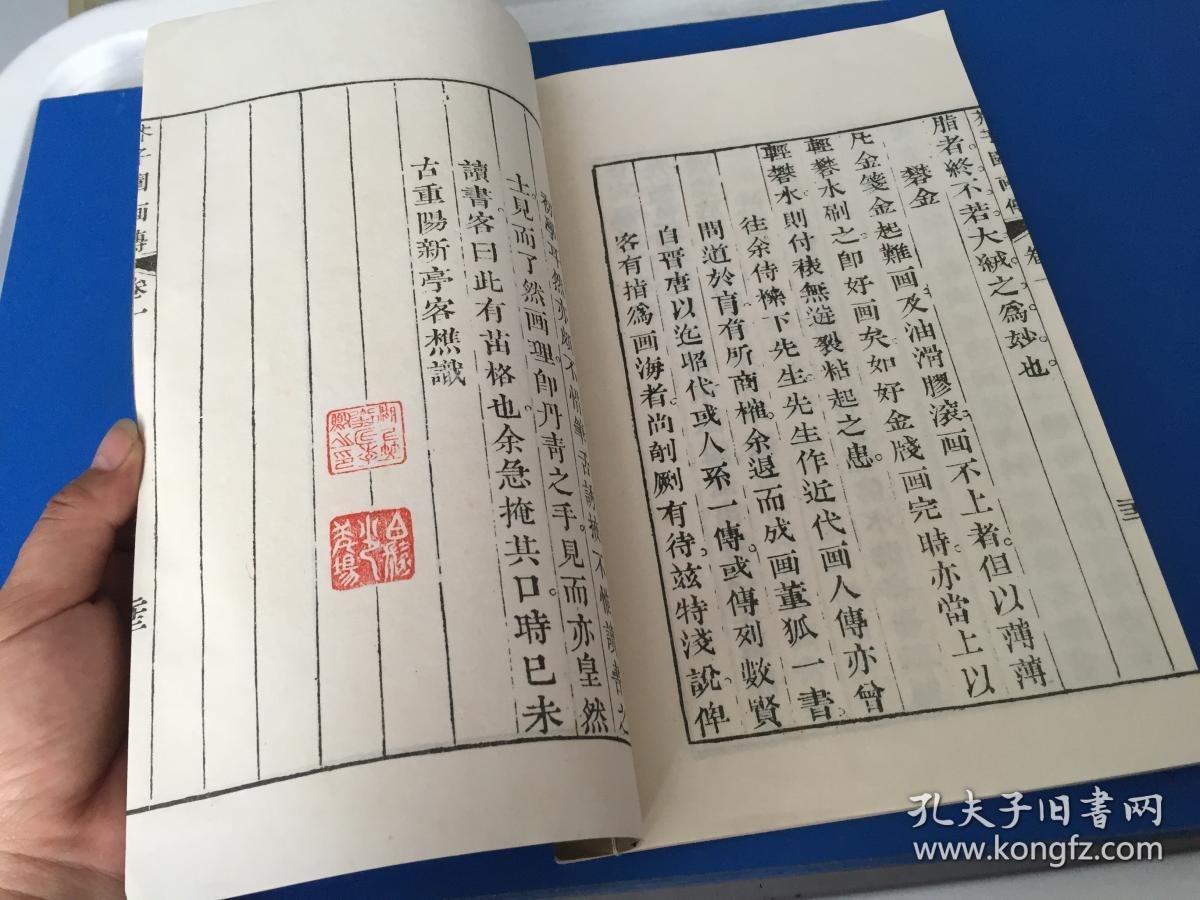 芥子園画傳 卷一
脂者終不若大絨之爲妙也
礬金
凡金箋金起難画及油滑膠滾画不上者但以薄薄
輕礬水刷之卽好画矣如好金牋画完時亦當上以
輕礬水則付裱無迸裂粘起之患
往余侍櫟下先生先生作近代画人傳亦曾
問道於盲有所商榷余退而成画董狐一書
自晉唐以迄昭代或人系一傳或傳列數賢
客有指爲画海者尚剞劂有待茲特淺說俾
士見而了然画理卽丹靑之手見而亦皇然
讀書客曰此有苗格也余急掩其口時巳未
古重陽新亭客樵識
芥子園画傳 卷一
孔夫子旧书网
www.kongfz.com